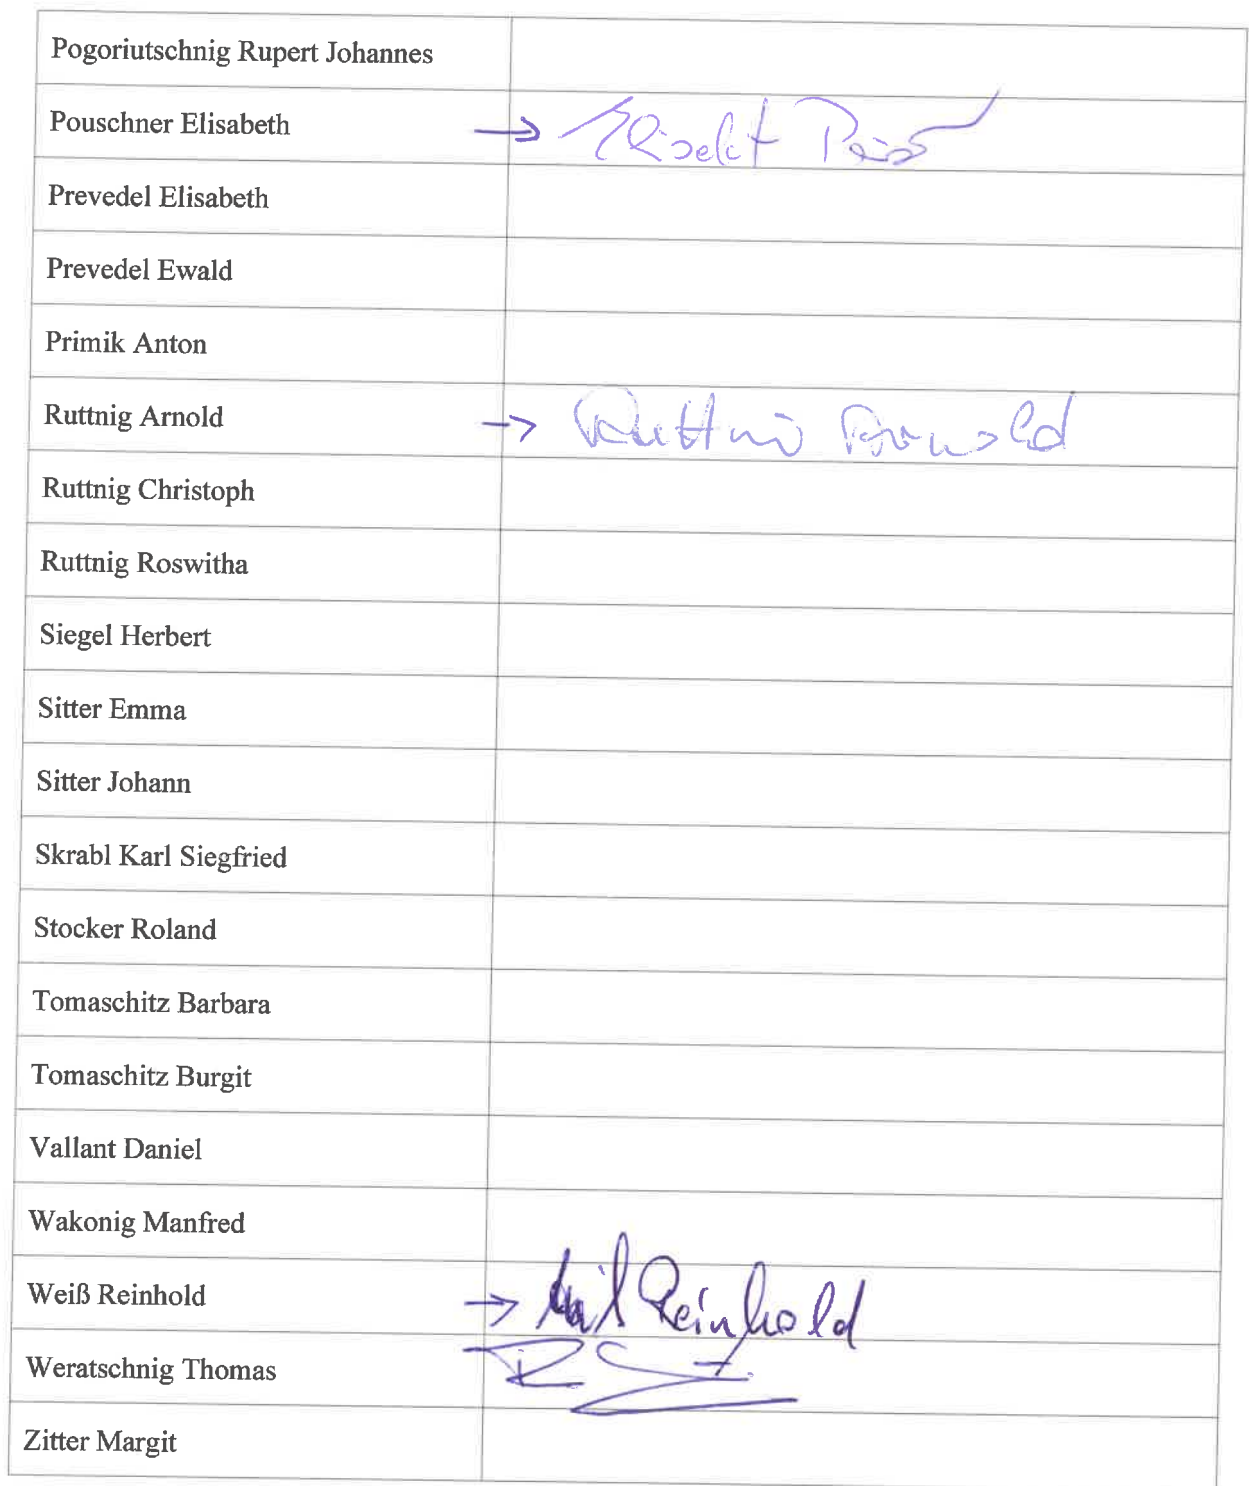 Pogoriutschnig Rupert Johannes
Pouschner Elisabeth →
Prevedel Elisabeth
Prevedel Ewald
Primik Anton
Ruttnig Arnold → Ruttnig Arnold
Ruttnig Christoph
Ruttnig Roswitha
Siegel Herbert
Sitter Emma
Sitter Johann
Skrabl Karl Siegfried
Stocker Roland
Tomaschitz Barbara
Tomaschitz Burgit
Vallant Daniel
Wakonig Manfred
Weiß Reinhold → Reinhold
Weratschnig Thomas
Zitter Margit